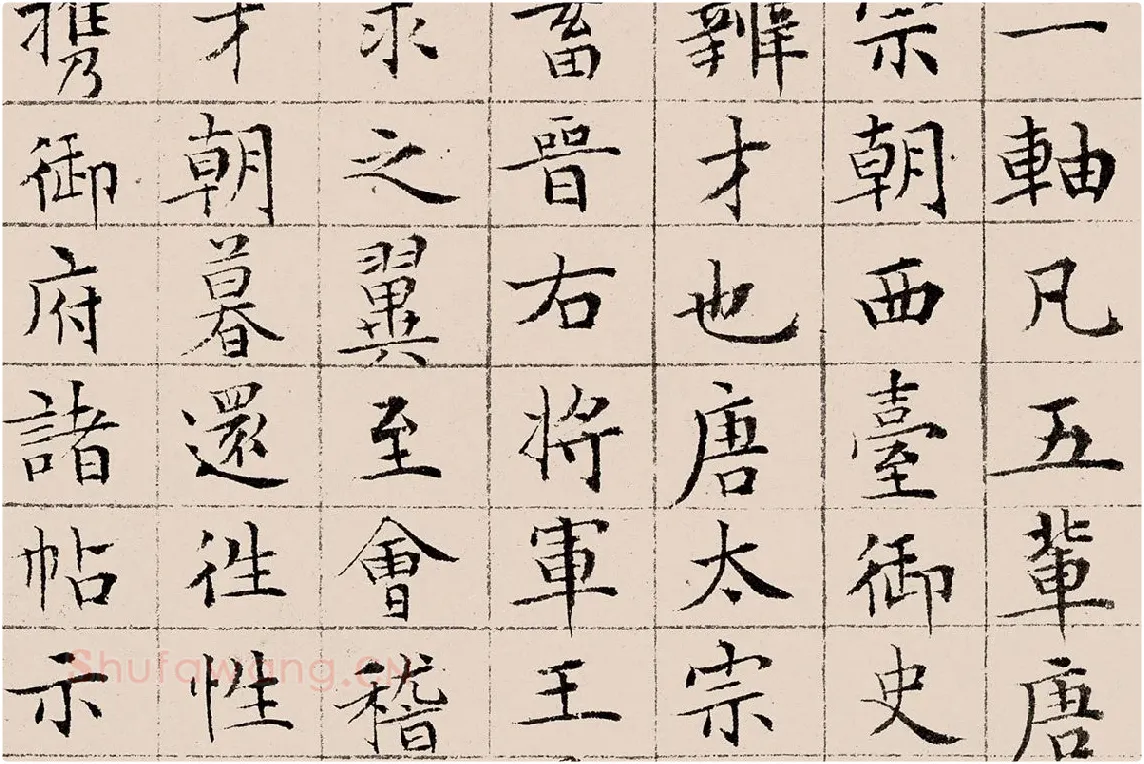 一軸凡五輩唐
宗朝西臺御史
辯才也唐太宗
畜晉右将軍王
求之翼至會稽
才朝暮還徃性
携御府諸帖示
Shufawang.CN